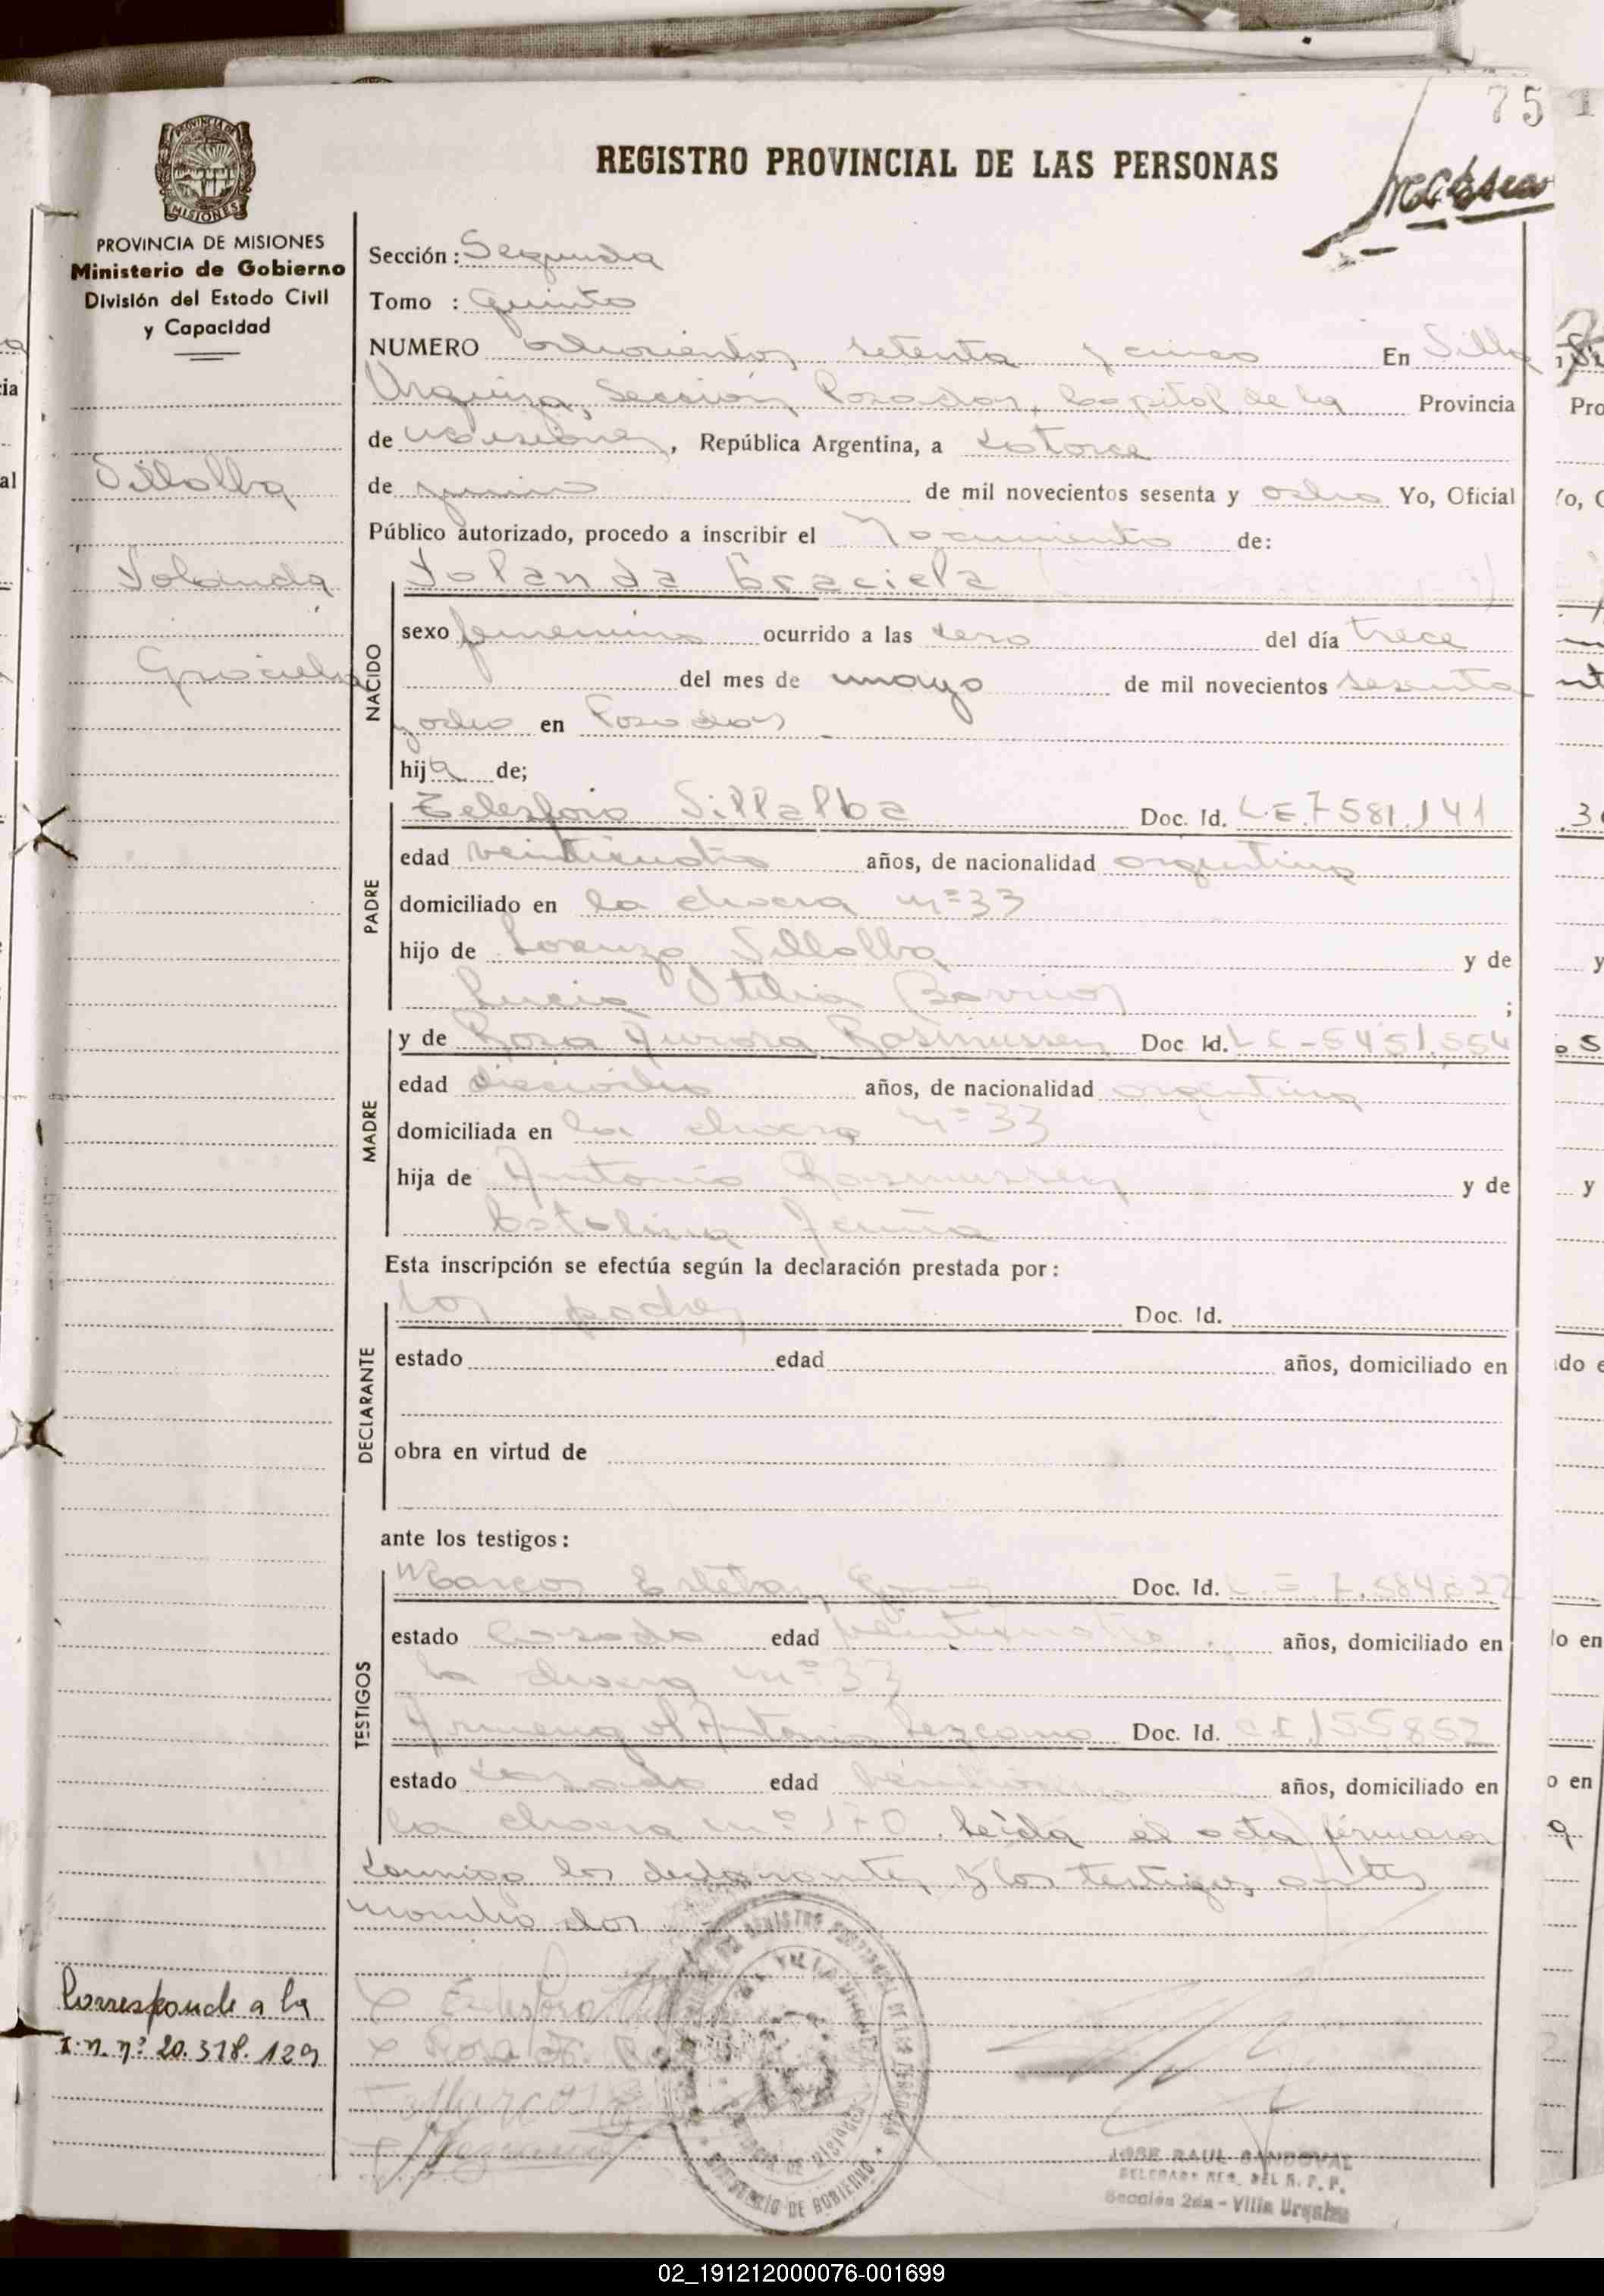 75
REGISTRO PROVINCIAL DE LAS PERSONAS
PROVINCIA DE
MISIONES
PROVINCIA DE MISIONES
Ministerio de Gobierno
División del Estado Civil
y Capacidad
Villalba
Yolanda
Graciela
Sección: Segunda
Tomo : Quinto
NUMERO ochocientos setenta y cinco En Villa
Urquiza, Sección Posadas, Capital de la Provincia
de Misiones, República Argentina, a catorce
de junio de mil novecientos sesenta y ocho Yo, Oficial
Público autorizado, procedo a inscribir el Nacimiento de:
NACIDO
Yolanda Graciela
sexo femenino ocurrido a las cero del día trece
del mes de mayo de mil novecientos sesenta
y ocho en Posadas
hija de;
PADRE
Telesforo Villalba Doc. Id. L.E.7581.141
edad veinticuatro años, de nacionalidad argentina
domiciliado en la chacra nº 33
hijo de Lorenzo Villalba y de
Lucia Otilia Barrios ;
MADRE
y de Rosa Aurora Rasmussen Doc Id. L C-5451.554
edad dieciocho años, de nacionalidad argentina
domiciliada en la chacra nº 33
hija de Antonio Rasmussen y de
Catalina
Esta inscripción se efectúa según la declaración prestada por:
DECLARANTE
los padres Doc. Id.
estado edad años, domiciliado en
obra en virtud de
ante los testigos:
TESTIGOS
Marcos Esteban Doc. Id. L.E. 7.584.822
estado casado edad veinticuatro años, domiciliado en
la chacra nº 33
Antonio Lezcano Doc. Id. C.I. 155852
estado casado edad años, domiciliado en
la chacra nº 170. Leída el acta firmaron
conmigo los declarantes y los testigos antes
REGISTRO PROVINCIAL DE LAS PERSONAS
MINISTERIO DE GOBIERNO
Corresponde a la
I.n. nº 20.318.129
Telesforo
Rosa A. R
Marcos
JOSE RAUL SANDOVAL
Sección 2da - Villa Urquiza
02_191212000076-001699